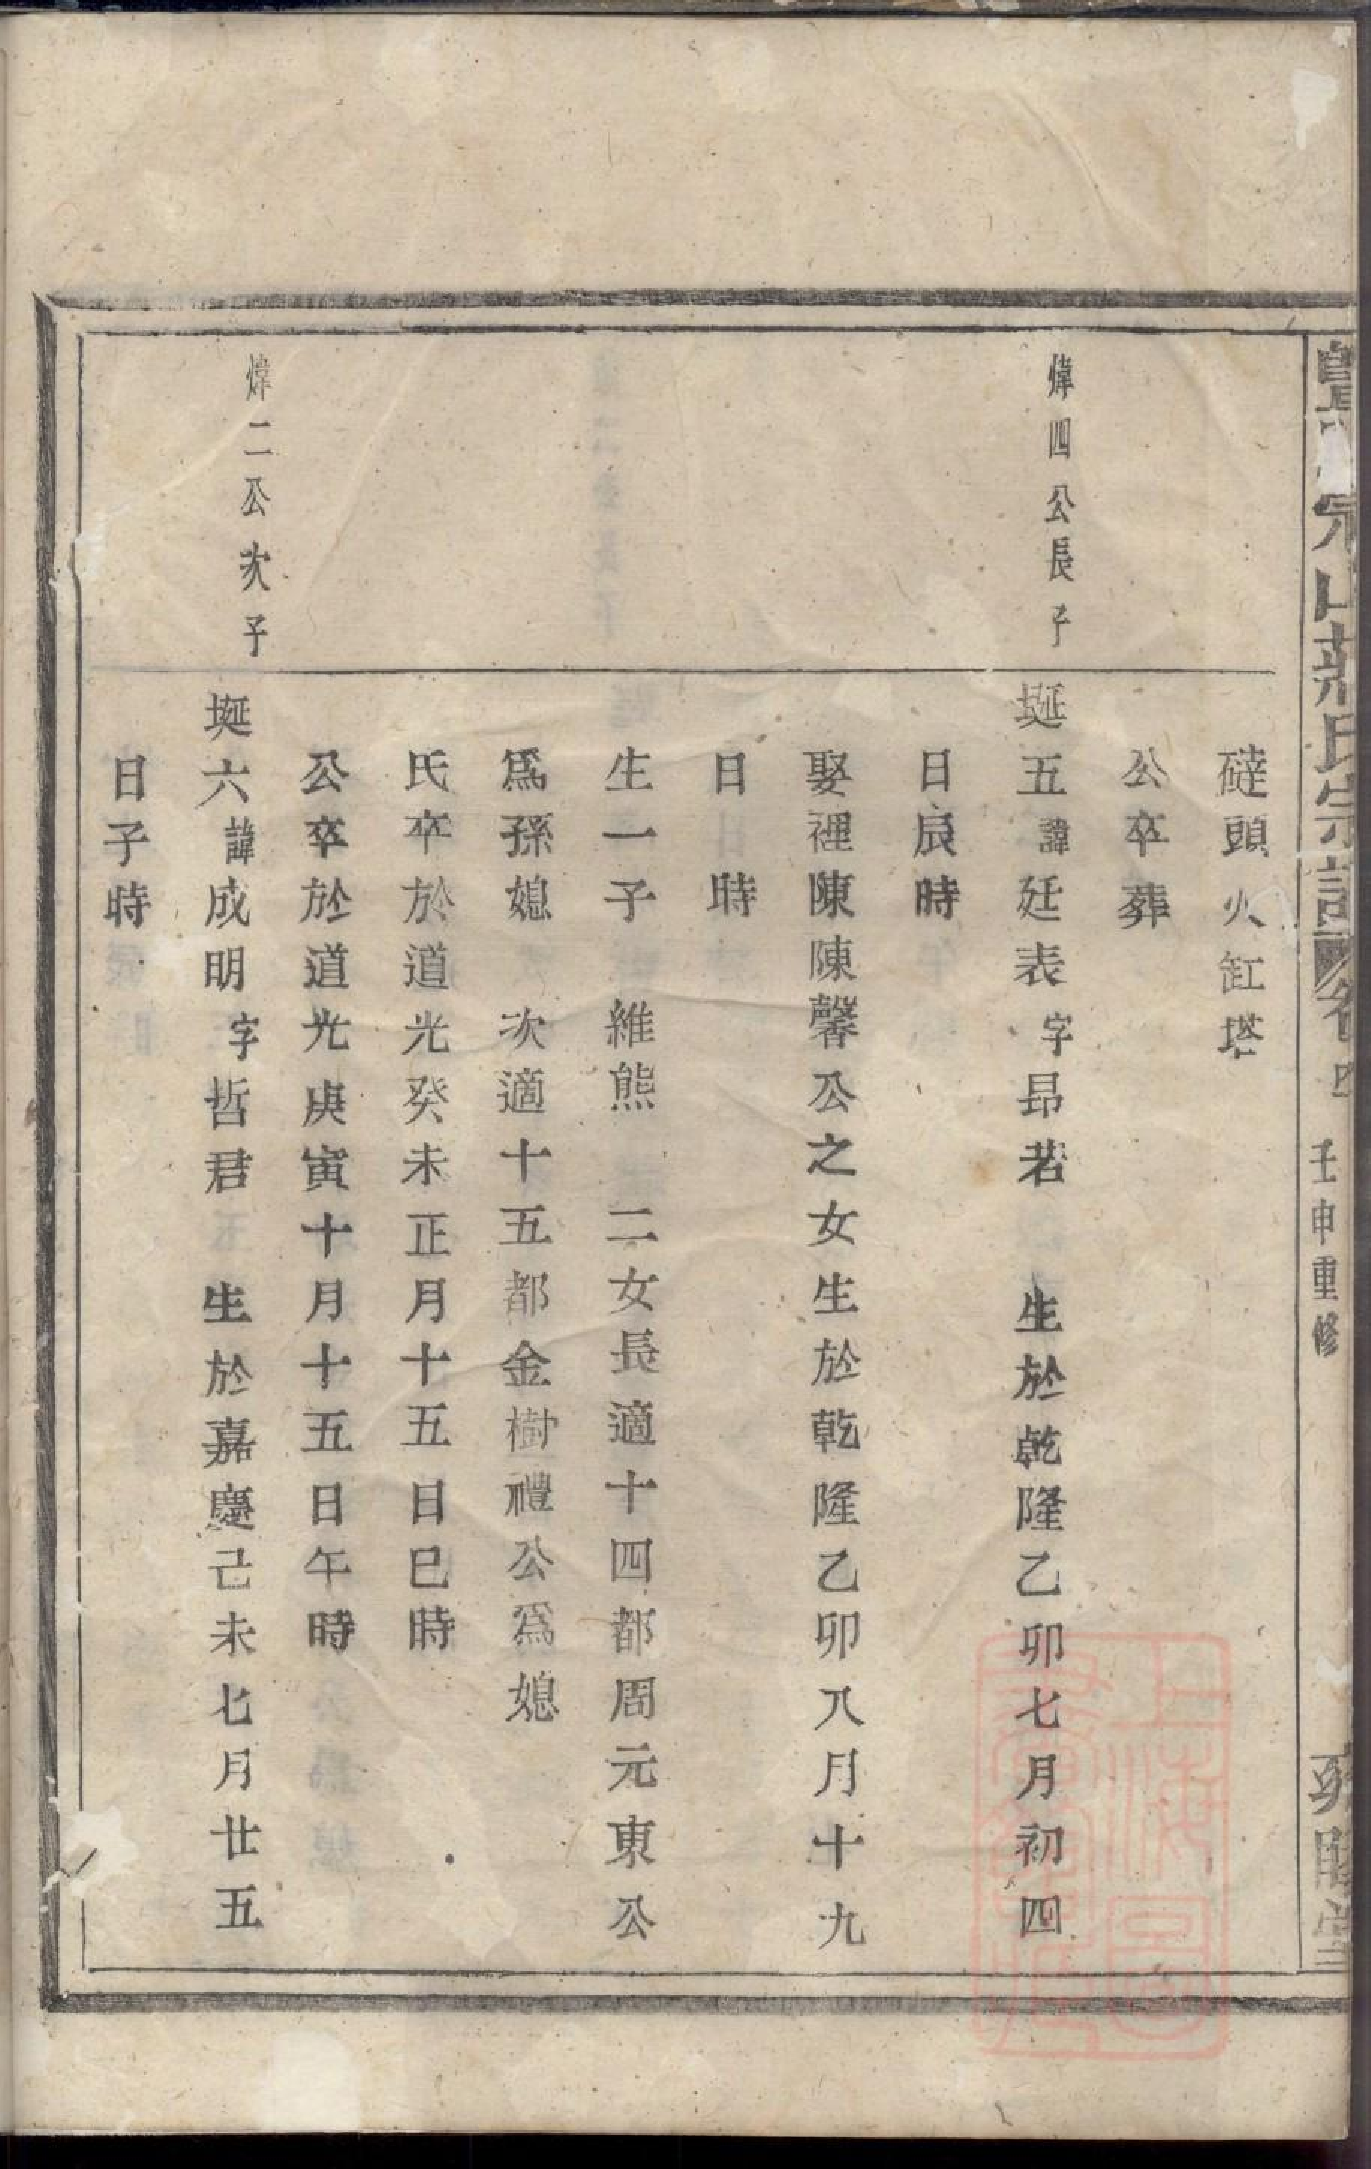 山莊氏宗譜卷四 壬申重修
磽頭火缸塔
公卒葬
煒四公長子
埏五諱廷表字昂若 生於乾隆乙卯七月初四
日辰時
娶裡陳陳馨公之女生於乾隆乙卯八月十九
日 時
生一子 維熊 二女長適十四都周元東公
爲孫媳 次適十五都金樹禮公爲媳
氏卒於道光癸未正月十五日巳時
公卒於道光庚寅十月十五日午時
煒二公次子
埏六諱成明字哲君 生於嘉慶己未七月廿五
日子時